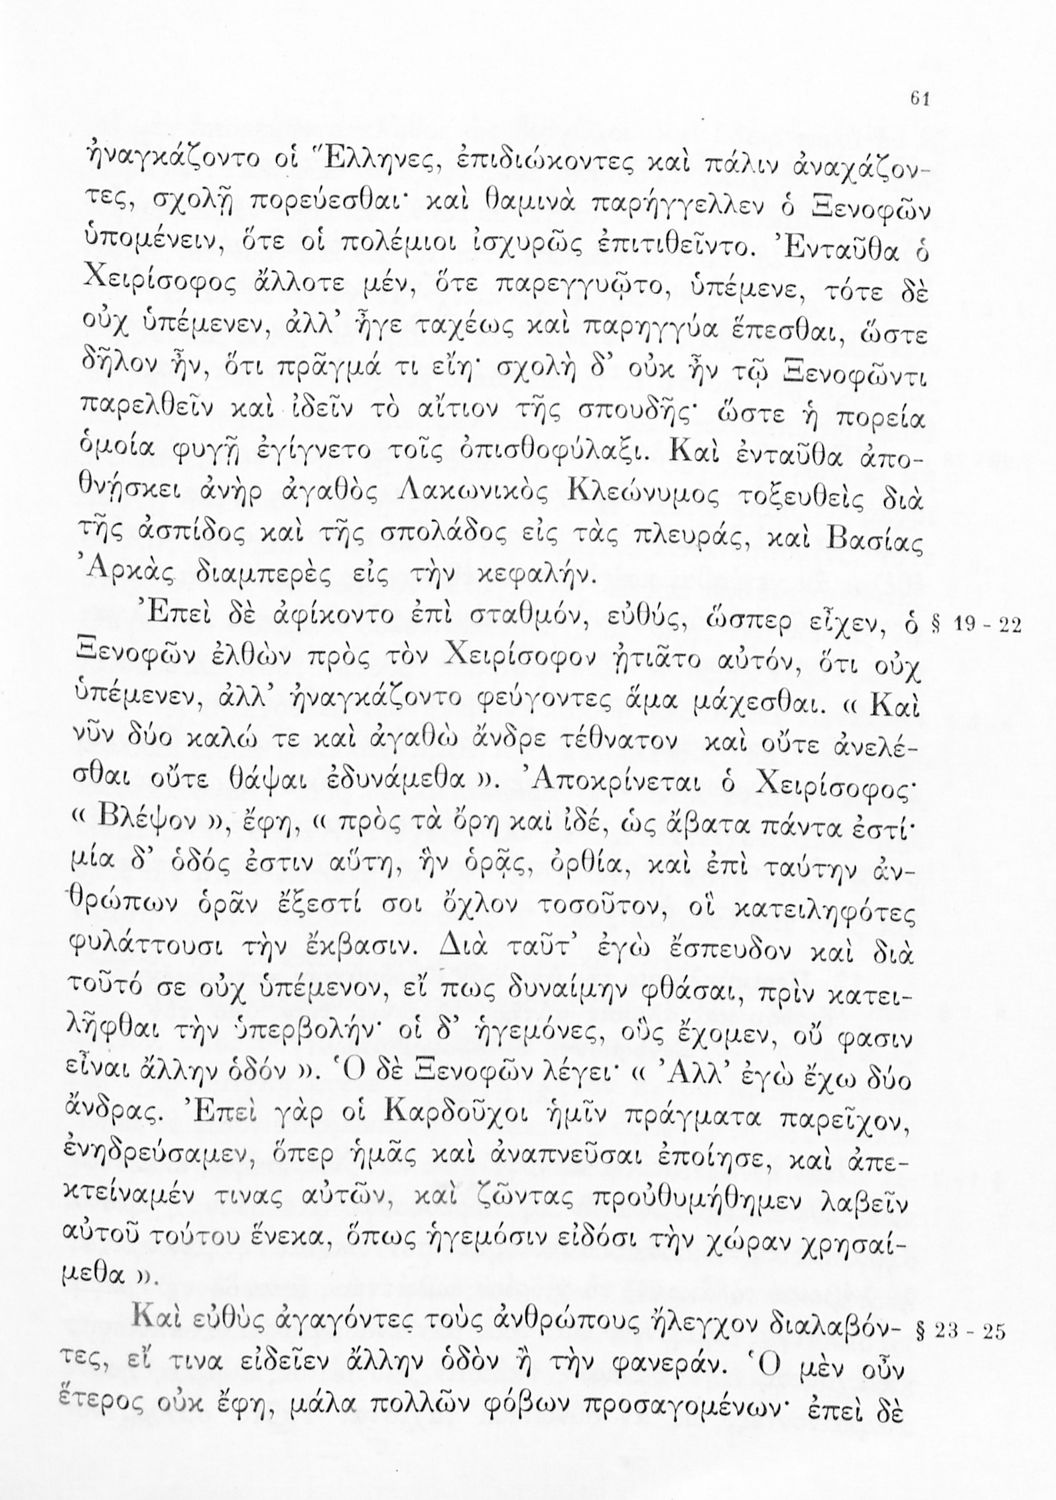 61
ἠναγκάζοντο οἱ Ἕλληνες, ἐπιδιώκοντες καὶ πάλιν ἀναχάζον-
τες, σχολῇ πορεύεσθαι· καὶ θαμινὰ παρήγγελλεν ὁ Ξενοφῶν
ὑπομένειν, ὅτε οἱ πολέμιοι ἰσχυρῶς ἐπιτιθεῖντο. Ἐνταῦθα ὁ
Χειρίσοφος ἄλλοτε μέν, ὅτε παρεγγυῷτο, ὑπέμενε, τότε δὲ
οὐχ ὑπέμενεν, ἀλλ’ ἦγε ταχέως καὶ παρηγγύα ἕπεσθαι, ὥστε
δῆλον ἦν, ὅτι πρᾶγμά τι εἴη· σχολὴ δ’ οὐκ ἦν τῷ Ξενοφῶντι
παρελθεῖν καὶ ἰδεῖν τὸ αἴτιον τῆς σπουδῆς· ὥστε ἡ πορεία
ὁμοία φυγῇ ἐγίγνετο τοῖς ὀπισθοφύλαξι. Καὶ ἐνταῦθα ἀπο-
θνῄσκει ἀνὴρ ἀγαθὸς Λακωνικὸς Κλεώνυμος τοξευθεὶς διὰ
τῆς ἀσπίδος καὶ τῆς σπολάδος εἰς τὰς πλευράς, καὶ Βασίας
Ἀρκὰς διαμπερὲς εἰς τὴν κεφαλήν.
Ἐπεὶ δὲ ἀφίκοντο ἐπὶ σταθμόν, εὐθύς, ὥσπερ εἶχεν, ὁ § 19 - 22
Ξενοφῶν ἐλθὼν πρὸς τὸν Χειρίσοφον ᾐτιᾶτο αὐτόν, ὅτι οὐχ
ὑπέμενεν, ἀλλ’ ἠναγκάζοντο φεύγοντες ἅμα μάχεσθαι. « Καὶ
νῦν δύο καλώ τε καὶ ἀγαθὼ ἄνδρε τέθνατον καὶ οὔτε ἀνελέ-
σθαι οὔτε θάψαι ἐδυνάμεθα ». Ἀποκρίνεται ὁ Χειρίσοφος·
« Βλέψον », ἔφη, « πρὸς τὰ ὄρη καὶ ἰδέ, ὡς ἄβατα πάντα ἐστί·
μία δ’ ὁδός ἐστιν αὕτη, ἣν ὁρᾷς, ὀρθία, καὶ ἐπὶ ταύτην ἀν-
θρώπων ὁρᾶν ἔξεστί σοι ὄχλον τοσοῦτον, οἳ κατειληφότες
φυλάττουσι τὴν ἔκβασιν. Διὰ ταῦτ’ ἐγὼ ἔσπευδον καὶ διὰ
τοῦτό σε οὐχ ὑπέμενον, εἴ πως δυναίμην φθάσαι, πρὶν κατει-
λῆφθαι τὴν ὑπερβολήν· οἱ δ’ ἡγεμόνες, οὓς ἔχομεν, οὔ φασιν
εἶναι ἄλλην ὁδόν ». Ὁ δὲ Ξενοφῶν λέγει· « Ἀλλ’ ἐγὼ ἔχω δύο
ἄνδρας. Ἐπεὶ γὰρ οἱ Καρδοῦχοι ἡμῖν πράγματα παρεῖχον,
ἐνηδρεύσαμεν, ὅπερ ἡμᾶς καὶ ἀναπνεῦσαι ἐποίησε, καὶ ἀπε-
κτείναμέν τινας αὐτῶν, καὶ ζῶντας προὐθυμήθημεν λαβεῖν
αὐτοῦ τούτου ἕνεκα, ὅπως ἡγεμόσιν εἰδόσι τὴν χώραν χρησαί-
μεθα ».
Καὶ εὐθὺς ἀγαγόντες τοὺς ἀνθρώπους ἤλεγχον διαλαβόν- § 23 - 25
τες, εἴ τινα εἰδεῖεν ἄλλην ὁδὸν ἢ τὴν φανεράν. Ὁ μὲν οὖν
ἕτερος οὐκ ἔφη, μάλα πολλῶν φόβων προσαγομένων· ἐπεὶ δὲ